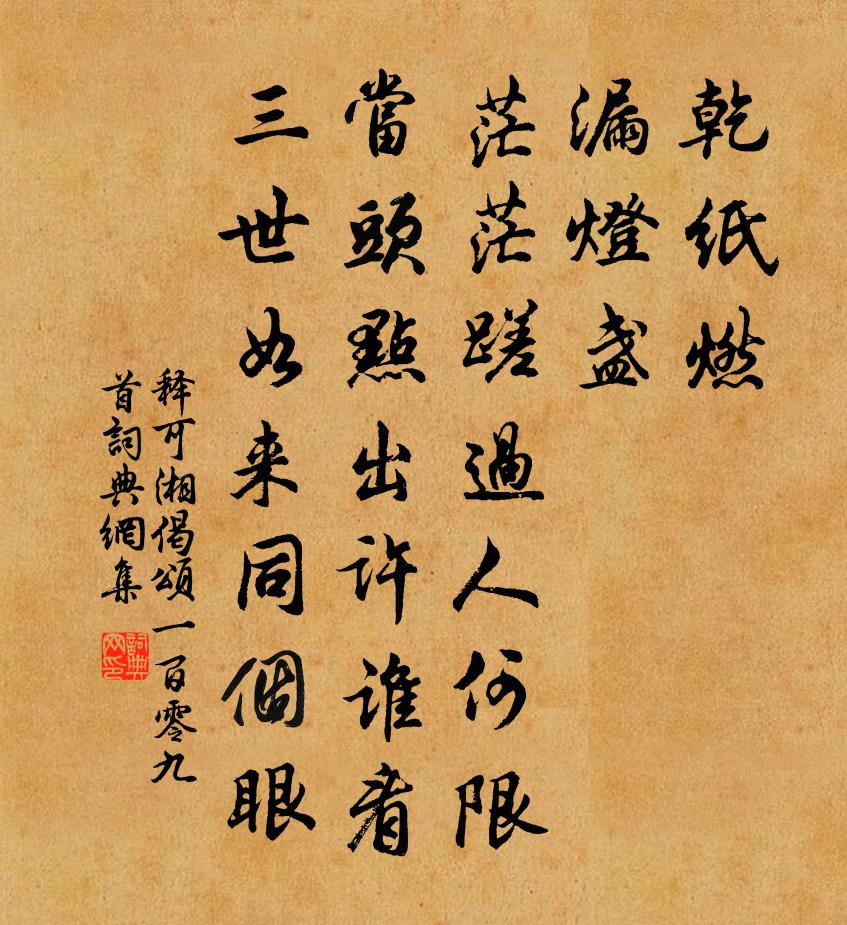 乾紙燃
漏燈盞
茫茫蹉過人何限
當頭點出許誰看
三世如来同個眼
释可湘偈頌一百零九
首詞典網集
詞典网印